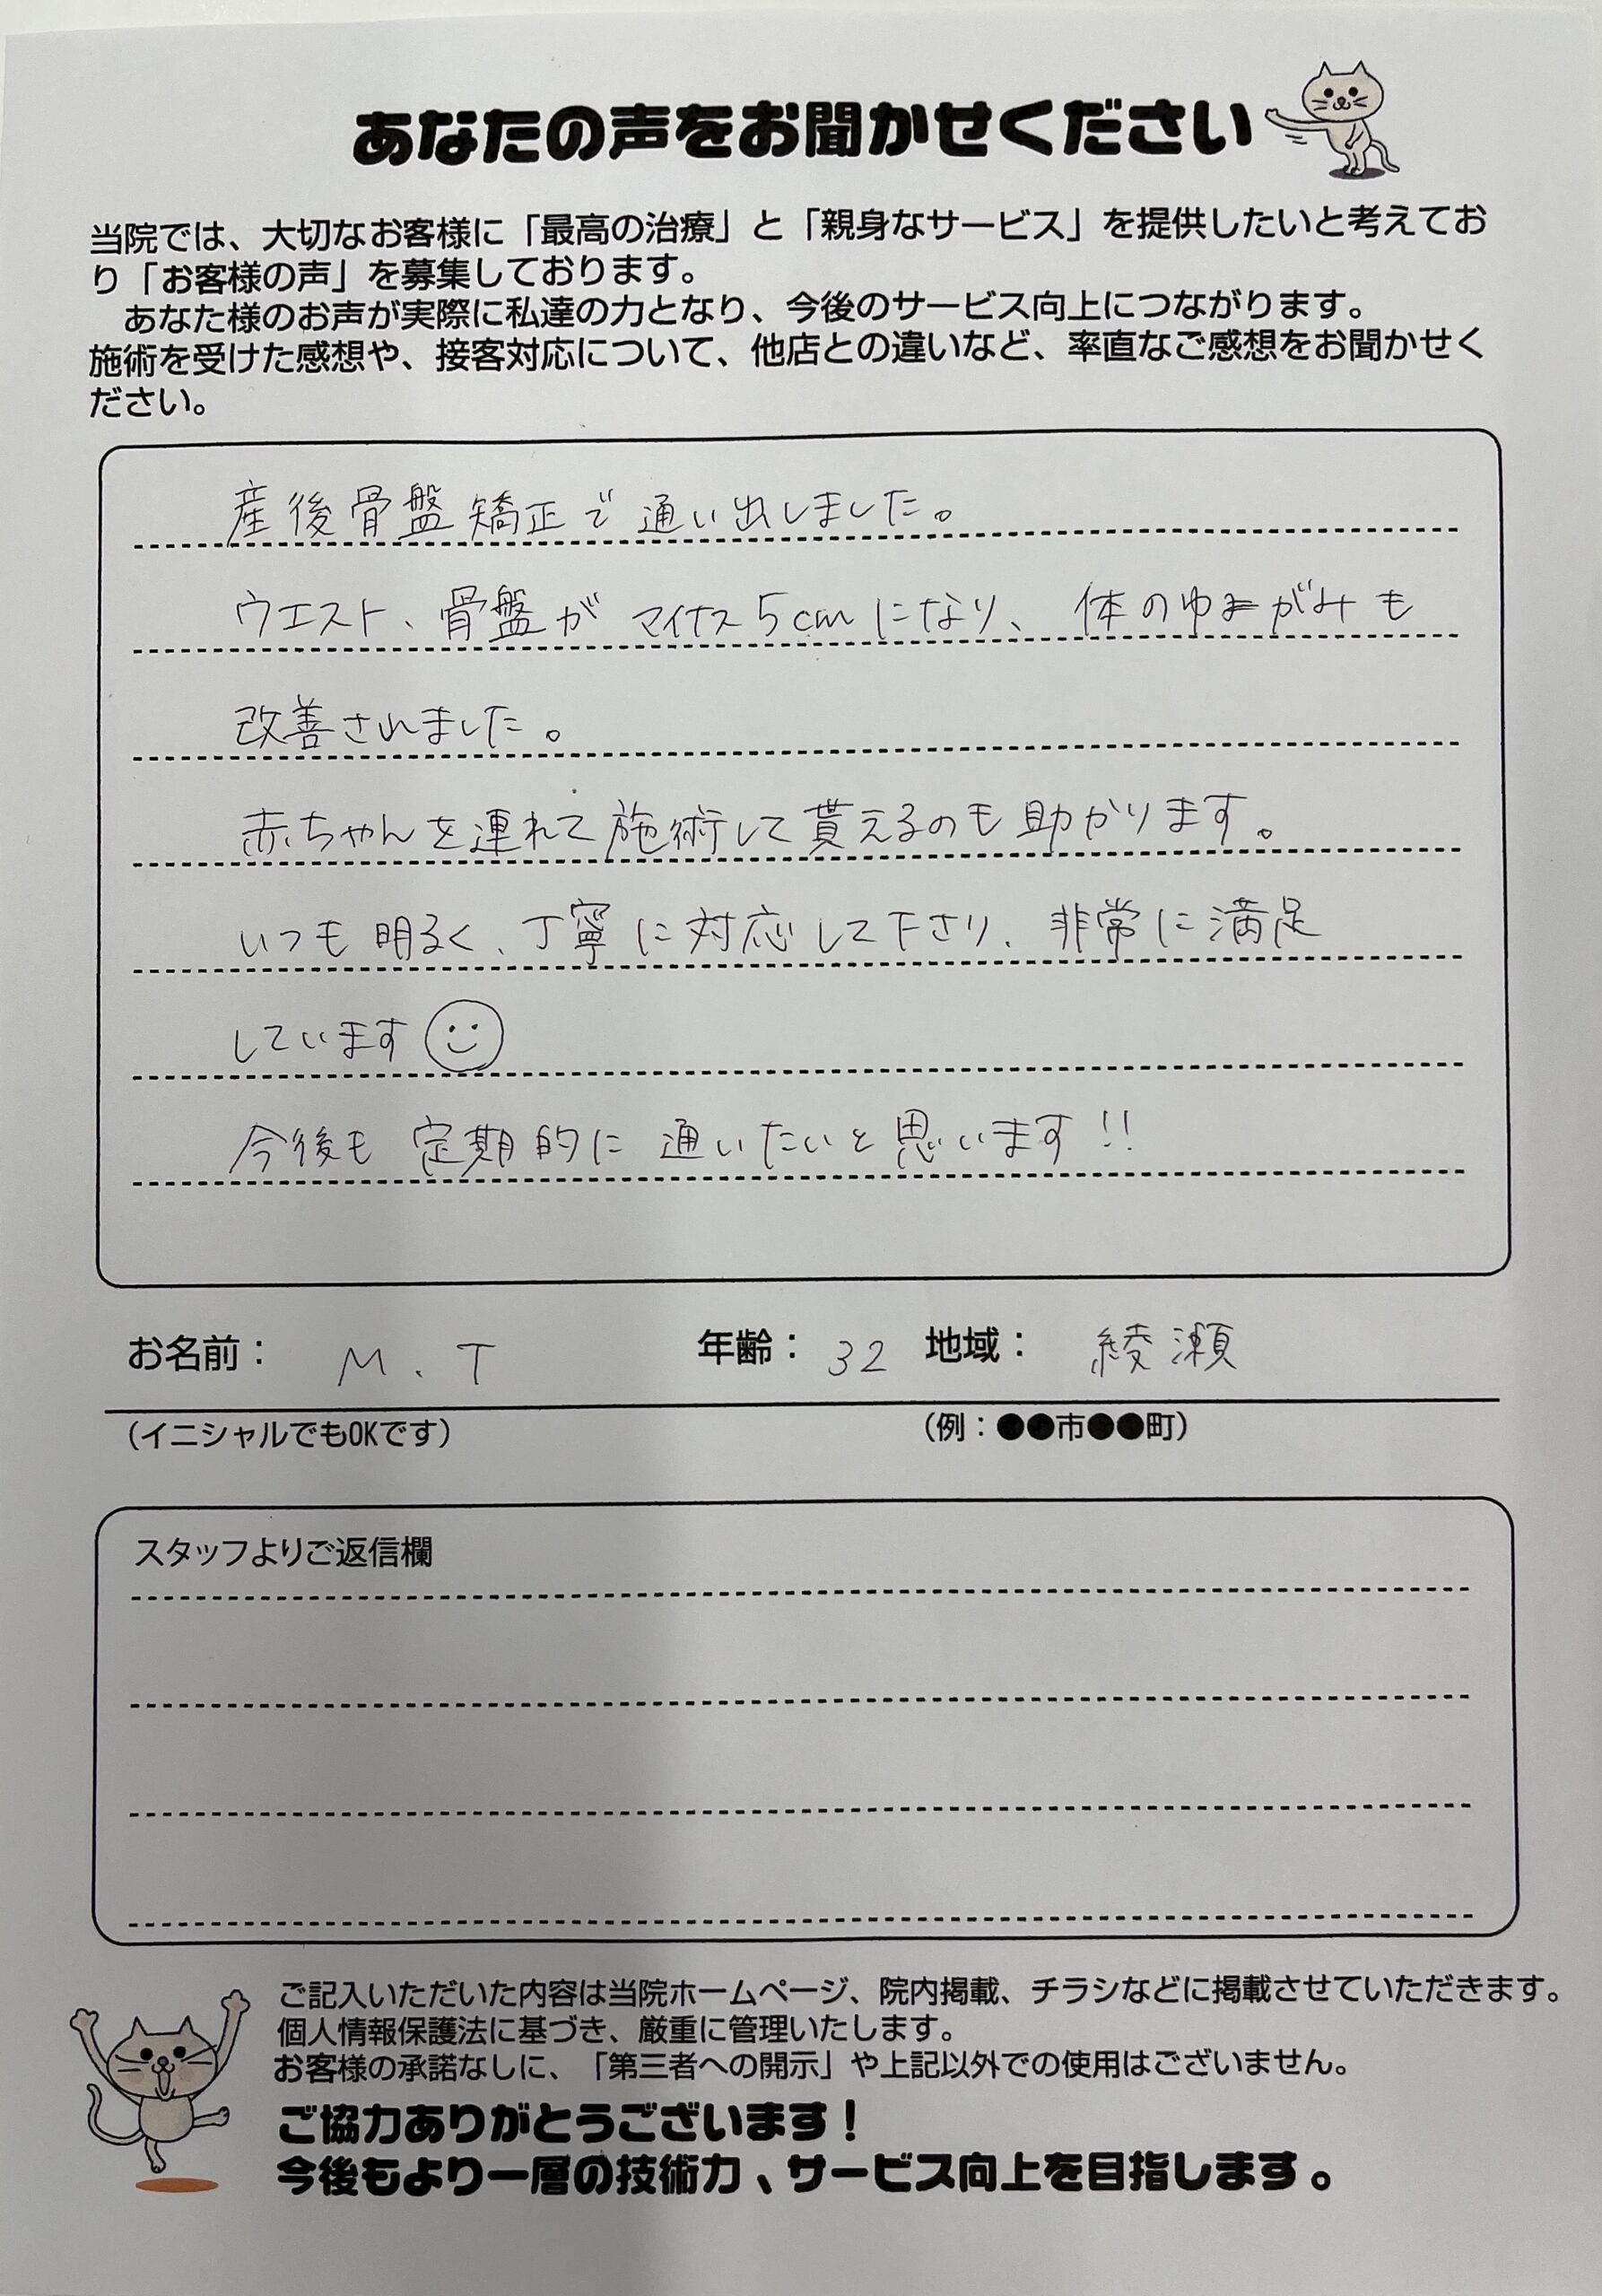 あなたの声をお聞かせください
当院では、大切なお客様に「最高の治療」と「親身なサービス」を提供したいと考えてお
り「お客様の声」を募集しております。
あなた様のお声が実際に私達の力となり、今後のサービス向上につながります。
施術を受けた感想や、接客対応について、他店との違いなど、率直なご感想をお聞かせく
ださい。
産後骨盤矯正で通い出しました。
ウエスト、骨盤がマイナス5cmになり、体のゆがみも
改善されました。
赤ちゃんを連れて施術して貰えるのも助かります。
いつも明るく、丁寧に対応して下さり、非常に満足
しています
今後も定期的に通いたいと思います!!
お名前： M.T 年齢： 32 地域： 綾瀬
（イニシャルでもOKです） （例：●●市●●町）
スタッフよりご返信欄
ご記入いただいた内容は当院ホームページ、院内掲載、チラシなどに掲載させていただきます。
個人情報保護法に基づき、厳重に管理いたします。
お客様の承諾なしに、「第三者への開示」や上記以外での使用はございません。
ご協力ありがとうございます！
今後もより一層の技術力、サービス向上を目指します。